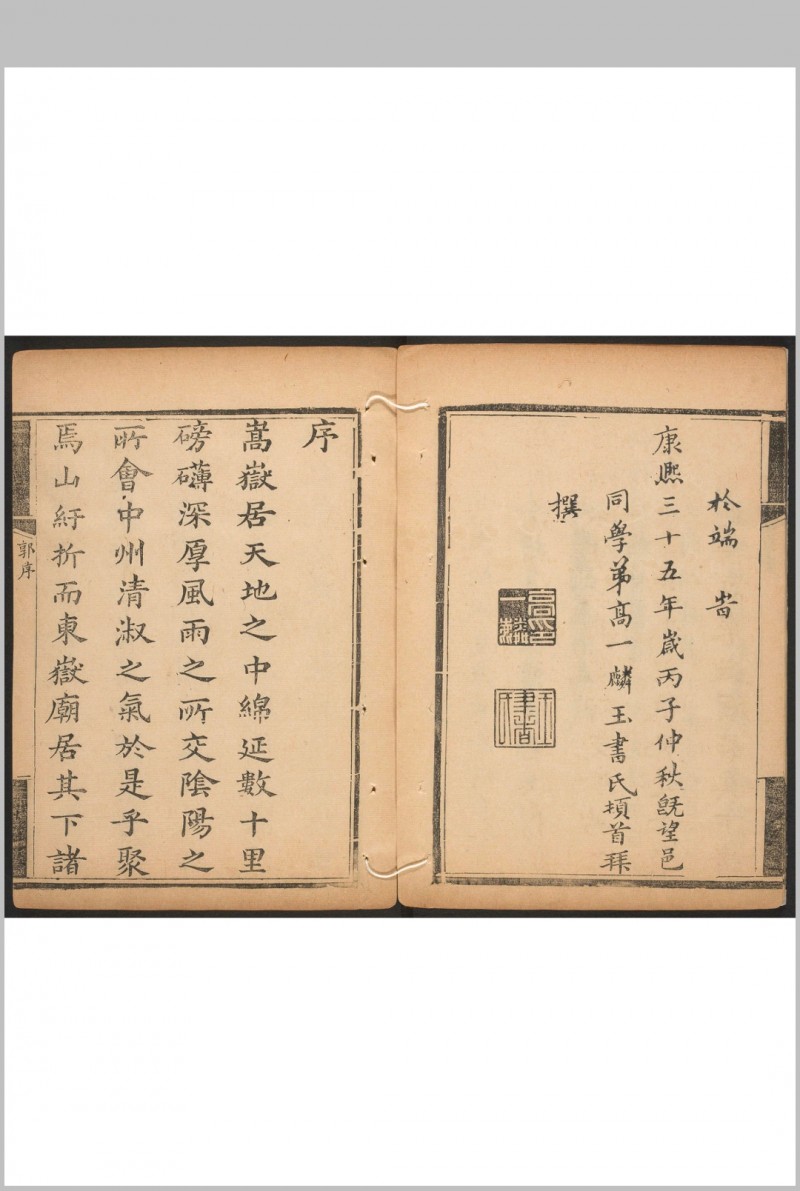 於端 峕
康熙三十五年歲丙子仲秋旣望邑
同學弟高一麟玉書氏頓首拜
撰
高一麟印
玉書氏
序
嵩嶽居天地之中綿延數十里
磅礴深厚風雨之所交陰陽之
所會中州清淑之氣於是乎聚
焉山紆折而東嶽廟居其下諸
郭序